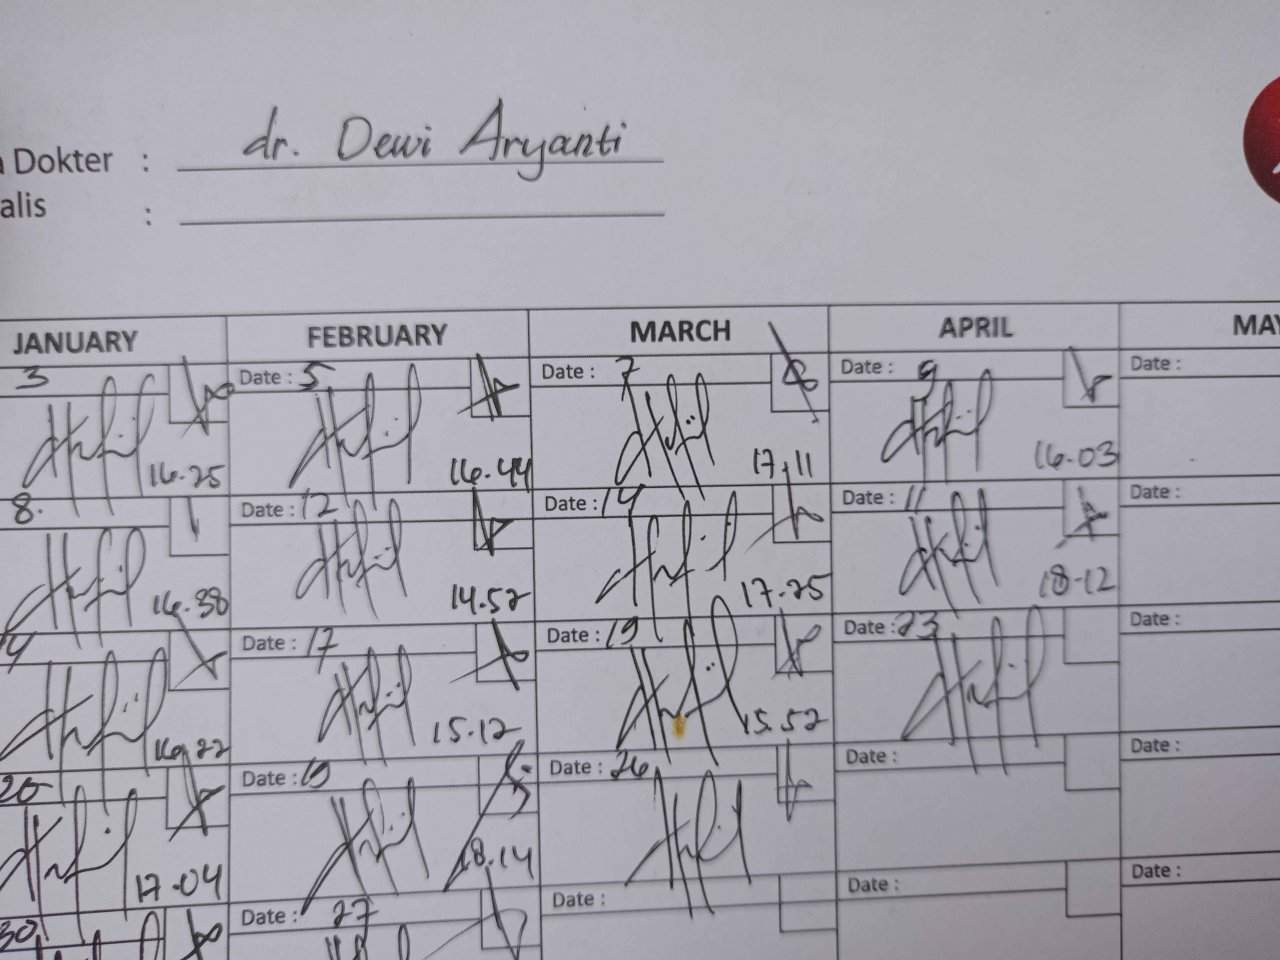 Dokter : dr. Dewi Aryanti
alis :
JANUARY FEBRUARY MARCH APRIL MAY
3 Date : 5 Date : 7 Date : 9 Date :
16.25 16.44 17.11 16.03
8. Date : 12 Date : 14 Date : 11 Date :
16.38 14.52 17.25 18-12
Date : 17 Date : 19 Date : 23 Date :
15.12 15.52
20 Date : 19 Date : 26 Date : Date :
17-04 18.14
30 Date : 27 Date : Date : Date :